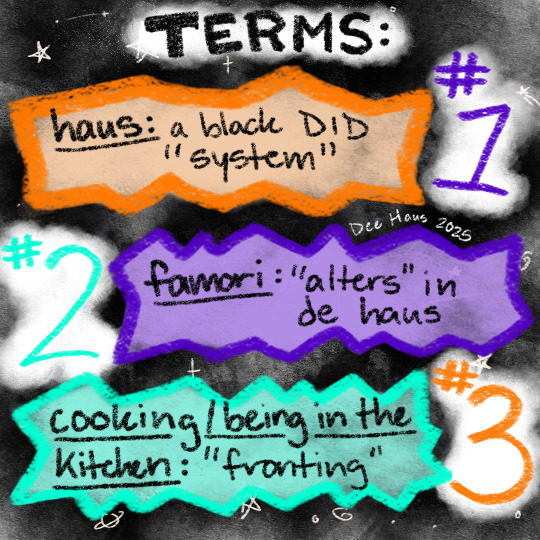 TERMS:
#1
haus: a black DID
"system"
Dee Haus 2025
#2
famori: "alters" in
de haus
#3
cooking/being in the
kitchen: "fronting"